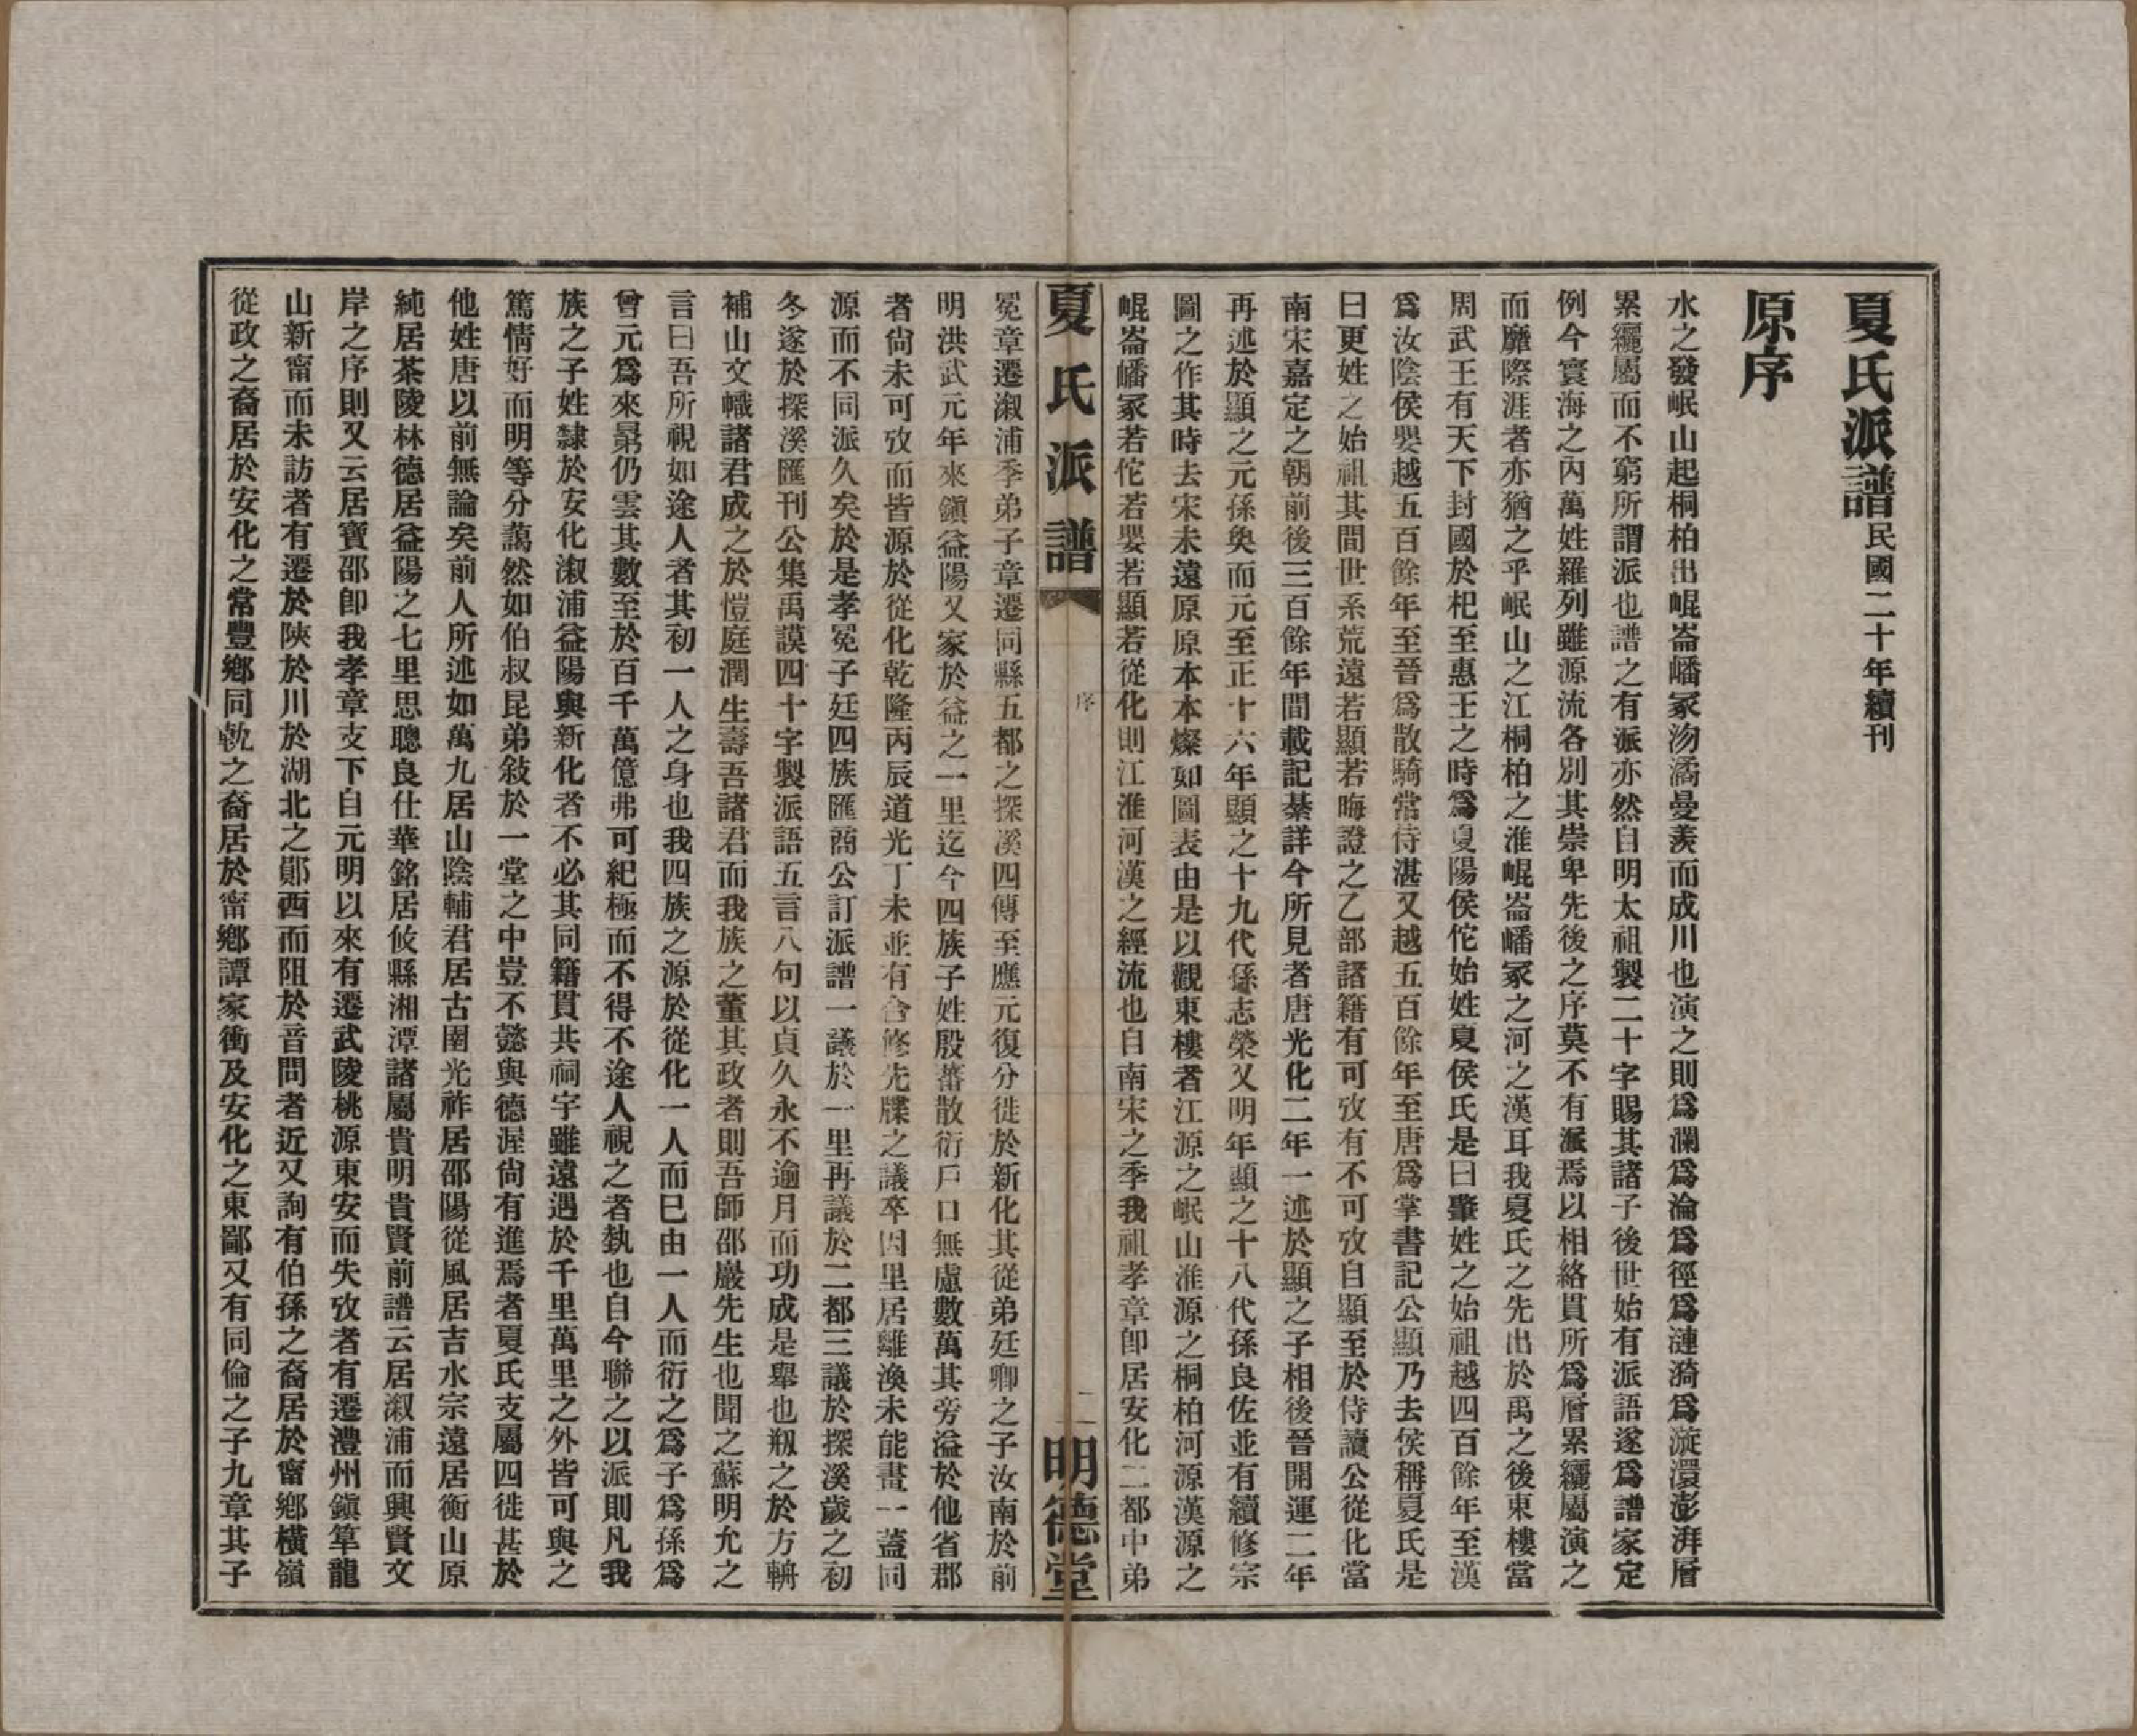 夏氏派譜民國二十年續刊
原序
水之發岷山起桐柏出崐崙嶓冢沕潏曼羨而成川也演之則爲瀾爲淪爲徑爲漣漪爲漩澴澎湃層
累纚屬而不窮所謂派也譜之有派亦然自明太祖製二十字賜其諸子後世始有派語遂爲譜家定
例今寰海之內萬姓羅列雖源流各別其崇卑先後之序莫不有派焉以相絡貫所爲層累纚屬演之
而靡際涯者亦猶之乎岷山之江桐柏之淮崐崙嶓冢之河之漢耳我夏氏之先出於禹之後東樓當
周武王有天下封國於杞至惠王之時爲夏陽侯佗始姓夏侯氏是曰肇姓之始祖越四百餘年至漢
爲汝陰侯嬰越五百餘年至晉爲散騎常侍湛又越五百餘年至唐爲掌書記公顯乃去侯稱夏氏是
曰更姓之始祖其間世系荒遠若顯若晦證之乙部諸籍有可攷有不可攷自顯至於侍讀公從化當
南宋嘉定之朝前後三百餘年間載記綦詳今所見者唐光化二年一述於顯之子相後晉開運二年
再述於顯之元孫奐而元至正十六年顯之十九代孫志榮又明年顯之十八代孫良佐並有續修宗
圖之作其時去宋未遠原原本本燦如圖表由是以觀東樓者江源之岷山淮源之桐柏河源漢源之
崐崙嶓冢若佗若嬰若顯若從化則江淮河漢之經流也自南宋之季我祖孝章卽居安化二都中弟
夏氏派譜
序
二
明德堂
冕章遷溆浦季弟子章遷同縣五都之探溪四傳至應元復分徙於新化其從弟廷卿之子汝南於前
明洪武元年來鎭益陽又家於益之一里迄今四族子姓殷蕃散衍戶口無慮數萬其旁溢於他省郡
者尙未可攷而皆源於從化乾隆丙辰道光丁未並有合修先牒之議卒因里居離渙未能畫一蓋同
源而不同派久矣於是孝冕子廷四族匯商公訂派譜一議於一里再議於二都三議於探溪歲之初
冬遂於探溪匯刊公集禹謨四十字製派語五言八句以貞久永不逾月而功成是舉也剏之於方輧
補山文幟諸君成之於愷庭潤生壽吾諸君而我族之董其政者則吾師邵巖先生也聞之蘇明允之
言曰吾所視如途人者其初一人之身也我四族之源於從化一人而巳由一人而衍之爲子爲孫爲
曾元爲來晜仍雲其數至於百千萬億弗可紀極而不得不途人視之者埶也自今聯之以派則凡我
族之子姓隸於安化溆浦益陽與新化者不必其同籍貫共祠宇雖遠遇於千里萬里之外皆可與之
篤情好而明等分藹然如伯叔昆弟敍於一堂之中豈不懿與德渥尙有進焉者夏氏支屬四徙甚於
他姓唐以前無論矣前人所述如萬九居山陰輔君居古圉光祚居邵陽從風居吉水宗遠居衡山原
純居茶陵林德居益陽之七里思聰良仕華銘居攸縣湘潭諸屬貴明貴賢前譜云居溆浦而興賢文
岸之序則又云居寶邵卽我孝章支下自元明以來有遷武陵桃源東安而失攷者有遷澧州鎭筸龍
山新甯而未訪者有遷於陝於川於湖北之鄖西而阻於音問者近又詢有伯孫之裔居於甯鄉橫嶺
從政之裔居於安化之常豐鄉同軏之裔居於甯鄉譚家衝及安化之東鄙又有同倫之子九章其子